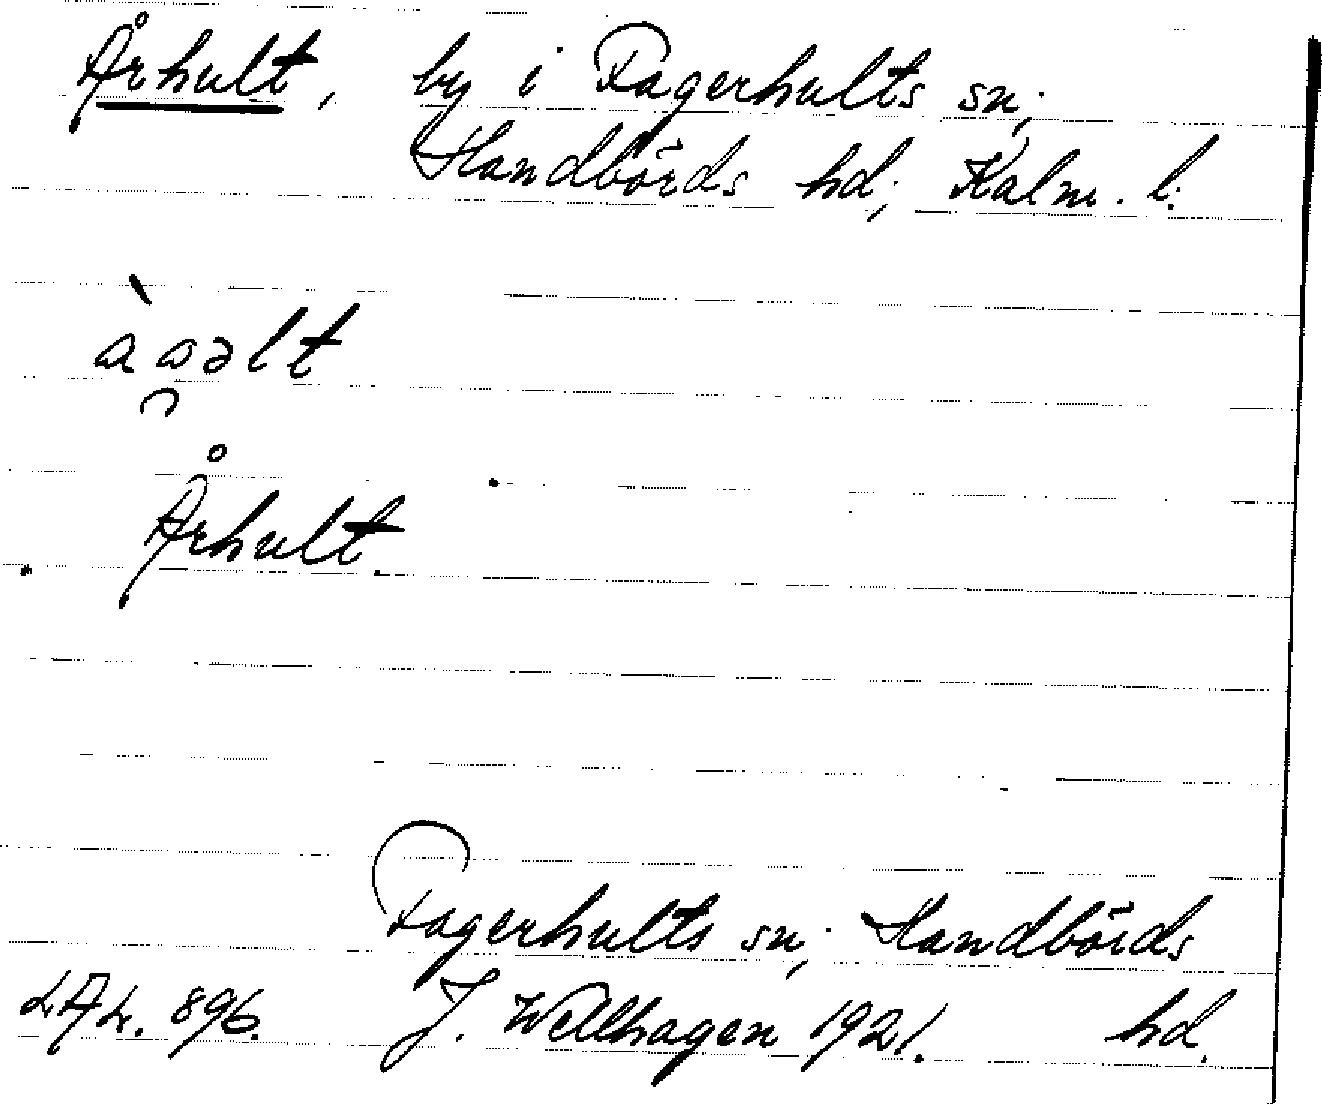 Århult, by i Fagerhults sn;
Handbörds hd; Kalm. l.
Århult.
Fagerhults sn; Handbörds
LAL. 896. J. Wellhagen 1921. hd.